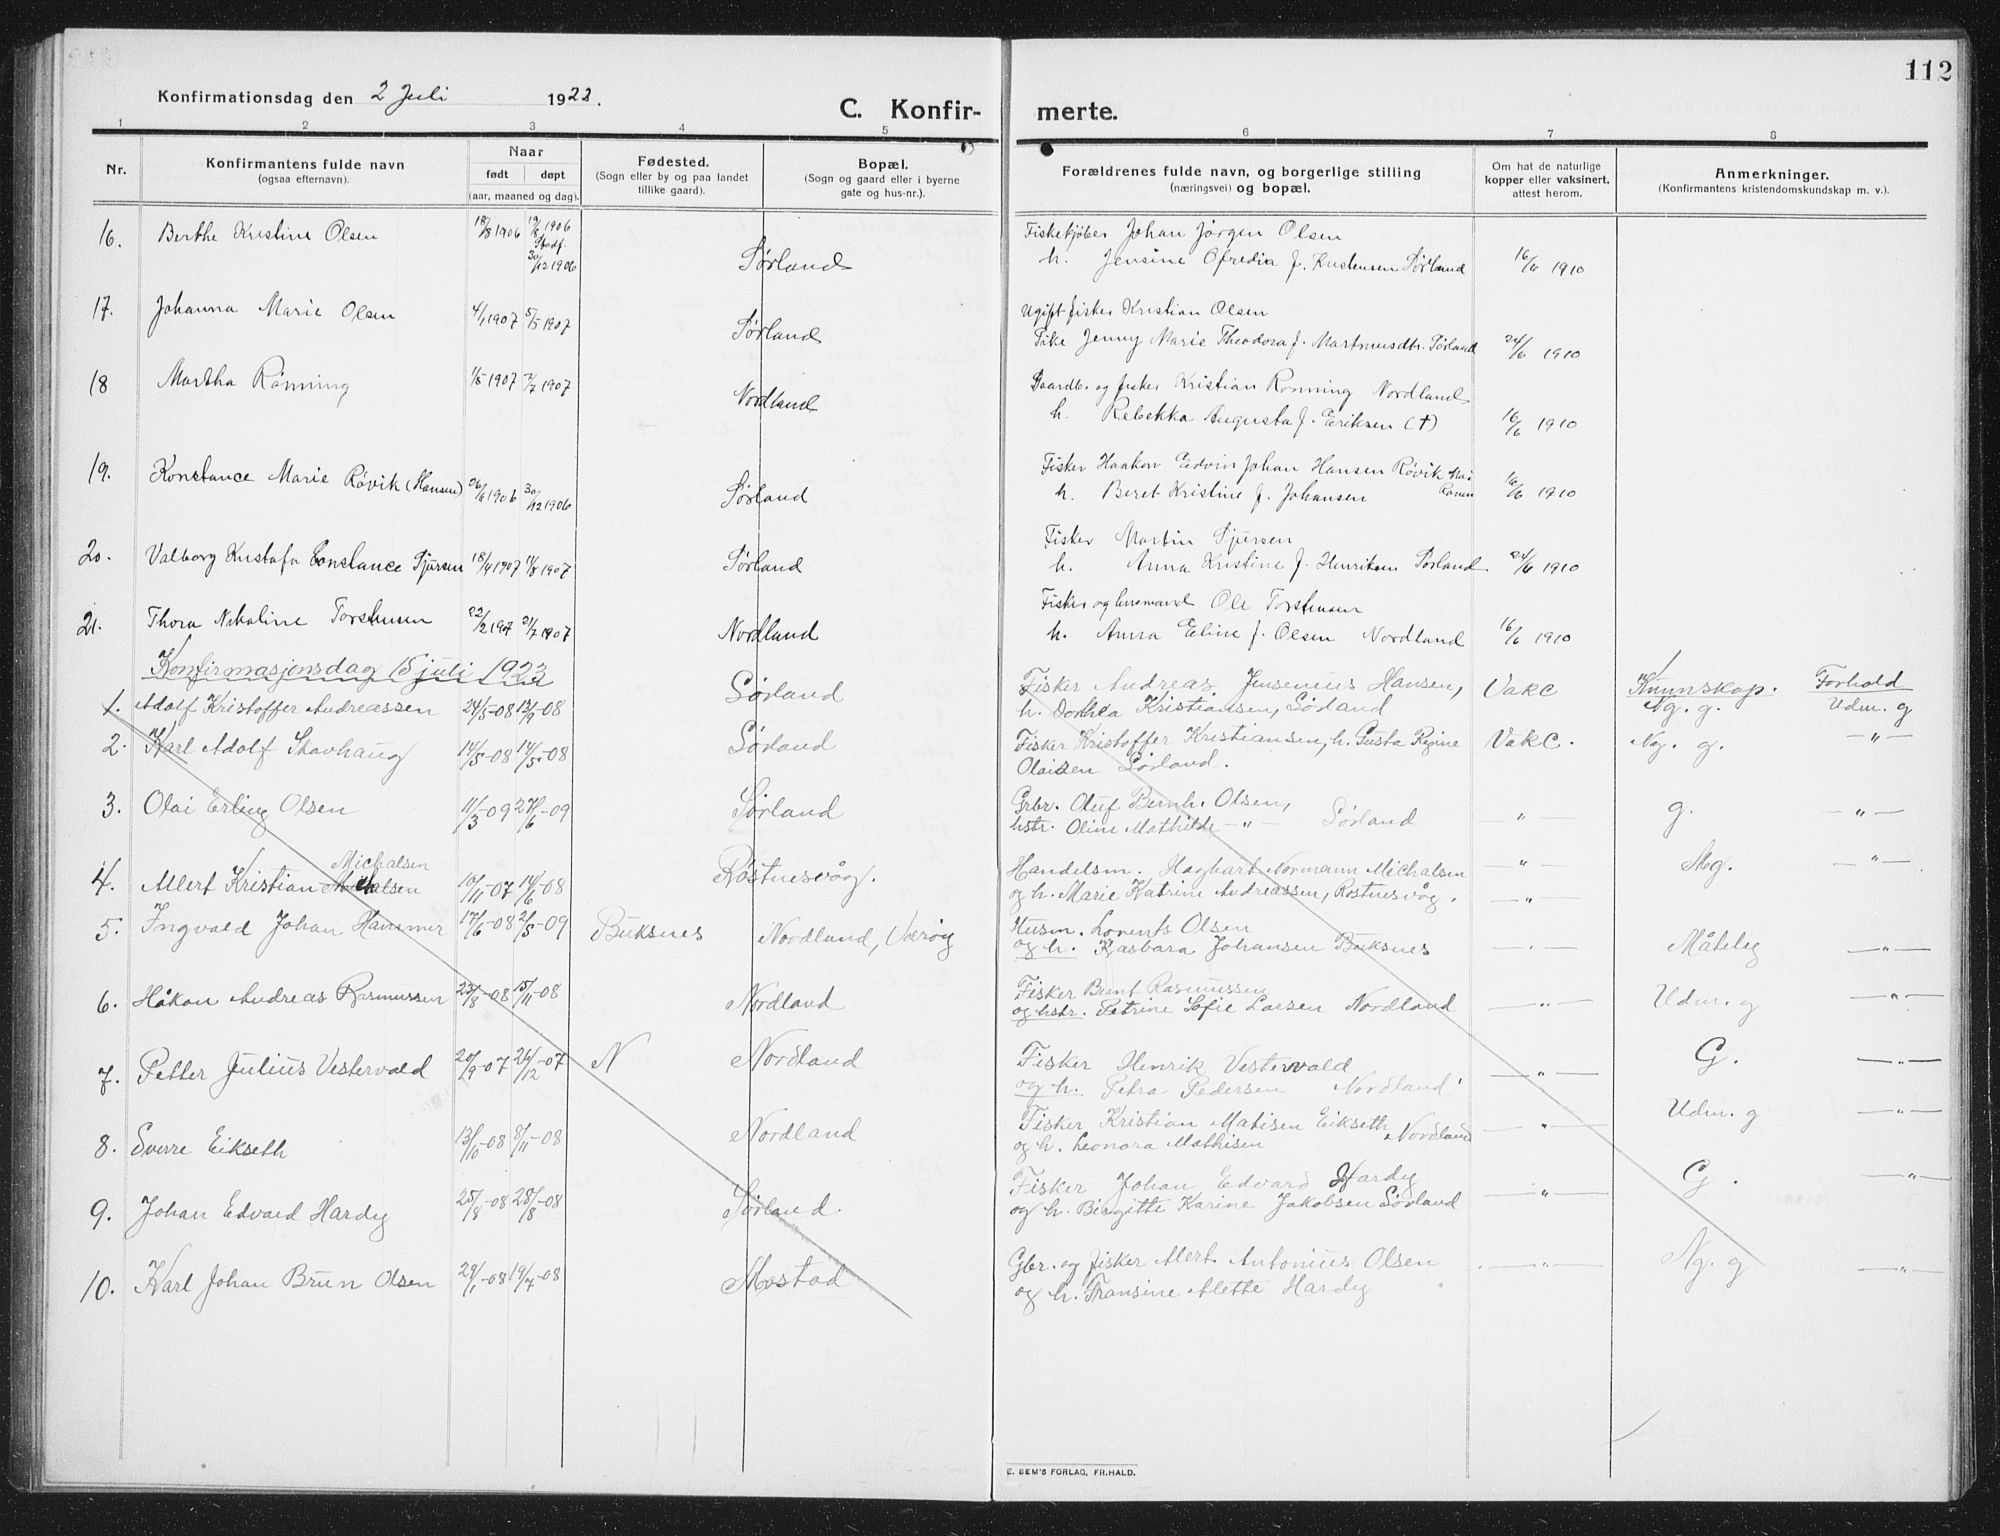 112
Konfirmationsdag den 2 Juli 1922.
C. Konfir- merte.
1 2 3 4 5 6 7 8
Nr.
Konfirmantens fulde navn
(ogsaa efternavn).
Naar
født døpt
(aar, maaned og dag).
Fødested.
(Sogn eller by og paa landet
tillike gaard).
Bopæl.
(Sogn og gaard eller i byerne
gate og hus-nr.).
Forældrenes fulde navn, og borgerlige stilling
(næringsvei) og bopæl.
Om hat de naturlige
kopper eller vaksinert,
attest herom.
Anmerkninger.
(Konfirmantens kristendomskundskap m. v.).
16. Berthe Kristine Olsen 18/8 1906 19/8 1906 Stadf. 30/12 1906 Sørland Fiskekjøber Johan Jørgen Olsen
h. Jensine Ofredia f. Kristensen Sørland 16/6 1910
17. Johanna Marie Olsen 4/1 1907 5/5 1907 Sørland Ugift fisker Kristian Olsen
Pike Jenny Marie Theodora f. Martinusdtr. Sørland 24/6 1910
18 Martha Rønning 1/5 1907 7/7 1907 Nordland Gaardb. og fisker Kristian Rønning Nordland
h. Rebekka Augusta f. Eriksen (†) 16/6 1910
19. Konstance Marie Røvik (Hansen) 26/6 1906 30/12 1906 Sørland Fisker Haakon Edvin Johan Hansen Røvik
h. Beret Kristine f. Johansen 16/6 1910
20. Valborg Kristofa Constance Sjursen 18/4 1907 11/8 1907 Sørland Fisker Martin Sjursen
h. Anna Kristine f. Henriksen Sørland 24/6 1910
21. Thora Nikoline Torstensen 22/2 1907 21/7 1907 Nordland Fisker og husmand Ole Torstensen
h. Anna Eline f. Olsen Nordland 16/6 1910
Konfirmasjonsdag 15 juli 1923
Kunnskap. Forhold
1. Adolf Kristoffer Andreassen 24/5-08 13/9-08 Sørland Fisker Andreas Jensenius Hansen, Vakc Ng. g. Udm. g
h. Dorthea Kristiansen, Sørland
2. Karl Adolf Skavhaug 14/5-08 14/5-08 Sørland Fisker Kristoffer Kristiansen, h. Gusta Regine Vakc. Ng. g. —"—
Olaisen Sørland.
3. Olai Erling Olsen 11/3-09 27/6-09 Sørland Grbr. Oluf Bernh. Olsen, —"— g. —"—
hstr. Oline Mathilde —"— Sørland
Michalsen
4. Alert Kristian Mikalsen 10/11-07 14/6-08 Røstnesvåg. Handelsm. Hagbart Normann Michalsen —"— Mg. —"—
og h. Marie Katrine Andreassen, Røstnesvåg. —"—
5. Ingvald Johan Hammer 17/6-08 2/5-09 Buksnes Nordland, Værøy Husm. Lorents Olsen
og h. Kasbara Johansen Buksnes —"— Måtelig —"—
6. Håkon Andreas Rasmussen 23/8-08 15/11-08 Nordland Fisker Bernt Rasmussen
og hstr. Petrine Sofie Larsen Nordland —"— Udm. g —"—
7. Petter Julius Vestervald 20/9-07 26/12-07 N Nordland Fisker Henrik Vestervald
og h. Petra Pedersen Nordland —"— G. —"—
8. Sverre Eikseth 13/10-08 8/11-08 Nordland Fisker Kristian Matisen Eikseth
og h. Leonora Mathisen Nordland —"— Udm. g
9. Johan Edvard Hardy 25/8-08 28/8-08 Sørland. Fisker Johan Edvard Hardy
og h. Birgitte Karine Jakobsen Sørland —"— G. —"—
10. Karl Johan Brun Olsen 29/1-08 19/7-08 Mostad Gbr. og fisker Alert Antonius Olsen
og h. Fransine Alette Hardy —"— Ng. g —"—
E. SEM'S FORLAG, FR.HALD.